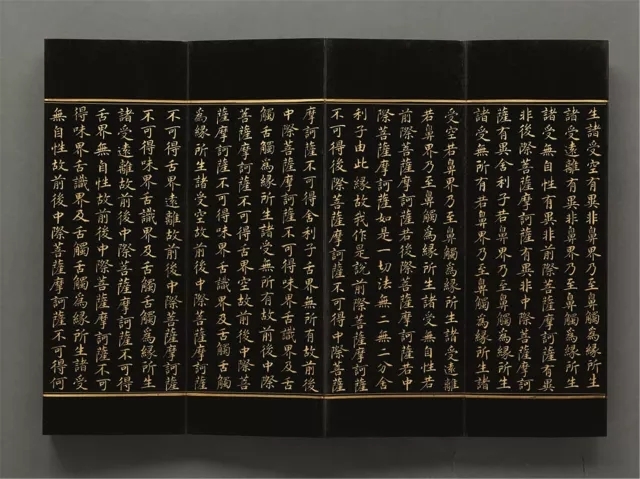 生諸受空有異非鼻界乃至鼻觸為緣所生
諸受遠離有異非鼻界乃至鼻觸為緣所生
諸受無自性有異非前際菩薩摩訶薩有異
非後際菩薩摩訶薩有異非中際菩薩摩訶
薩有異舍利子若鼻界乃至鼻觸為緣所生
諸受無所有若鼻界乃至鼻觸為緣所生諸
受空若鼻界乃至鼻觸為緣所生諸受遠離
若鼻界乃至鼻觸為緣所生諸受無自性若
前際菩薩摩訶薩若後際菩薩摩訶薩若中
際菩薩摩訶薩如是一切法無二無二分舍
利子由此緣故我作是說前際菩薩摩訶薩
不可得後際菩薩摩訶薩不可得中際菩薩
摩訶薩不可得舍利子舌界無所有故前後
中際菩薩摩訶薩不可得味界舌識界及舌
觸舌觸為緣所生諸受無所有故前後中際
菩薩摩訶薩不可得舌界空故前後中際菩
薩摩訶薩不可得味界舌識界及舌觸舌觸
為緣所生諸受空故前後中際菩薩摩訶薩
不可得舌界遠離故前後中際菩薩摩訶薩
不可得味界舌識界及舌觸舌觸為緣所生
諸受遠離故前後中際菩薩摩訶薩不可得
舌界無自性故前後中際菩薩摩訶薩不可
得味界舌識界及舌觸舌觸為緣所生諸受
無自性故前後中際菩薩摩訶薩不可得何